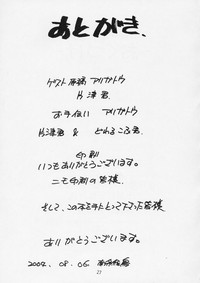 あとがき、
ゲスト原稿 アリガトウ
片津君
お手伝い アリガトウ
片津君 & どれみころ君
印刷
いつもありがとうございます。
ニモ印刷の皆様
そして、この本を手にとって下さった皆様
ありがとうございます。
2004. 08. 06
21